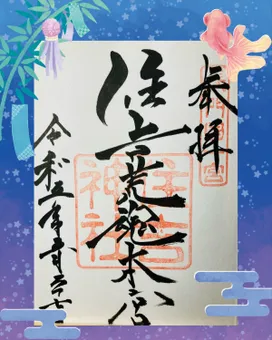 奉拝
住吉荒魂本宮
住吉神社
令和五年